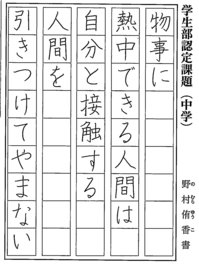 学生部認定課題（中学）
野村侑香書
のむらゆうこ
物事に
熱中できる人間は
自分と接触する
人間を
引きつけてやまない